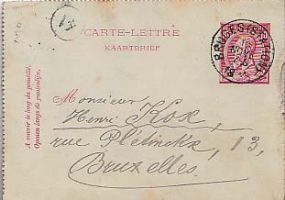 CARTE-LETTRE
KAARTBRIEF
BRUGES (STATION)
A ouvrir le long du pointillé.
Monsieur
Henri Kox,
rue Plétinckx, 13,
Bruxelles.